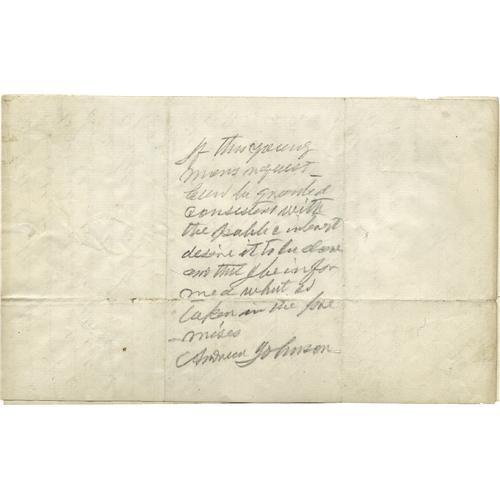 If this young
mans request
can be granted
consistent with
the public interest
desire it to be done
and that I be infor
med what is
taken in the pre
mises
Andrew Johnson